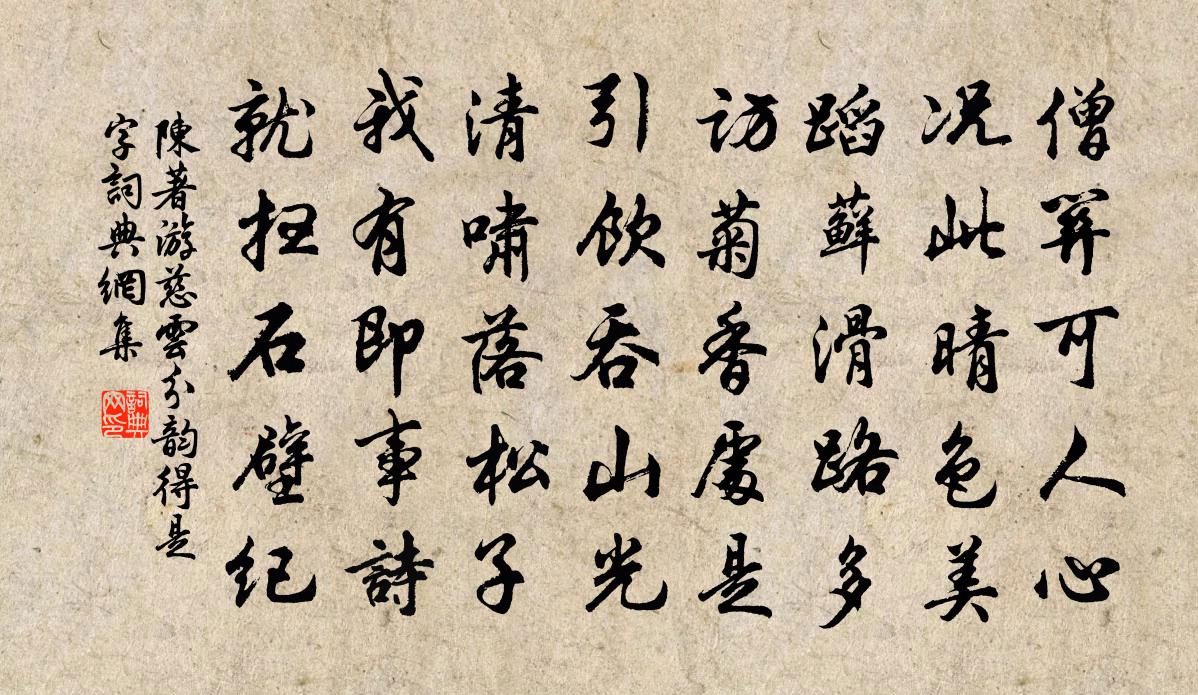 僧笄可人心
况此晴色美
蹈藓滑路多
访菊香處是
引飲吞山光
清嘯落松子
我有即事詩
就扫石壁纪
陳著游慈雲分韵得是
字詞典網集
詞典
网印